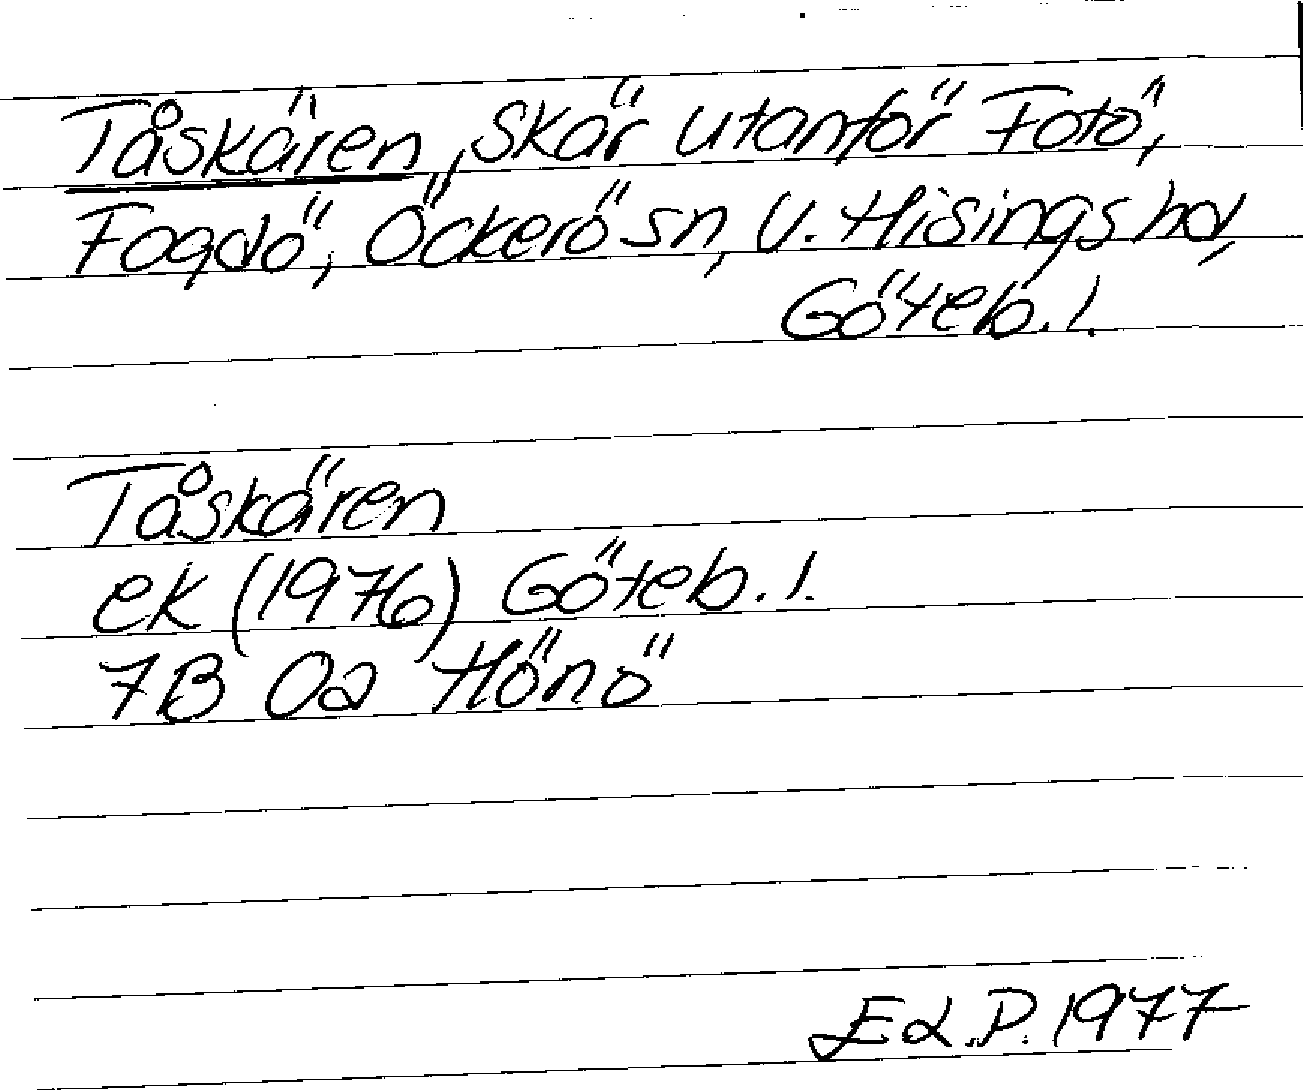 Tåskären, skär utanför Fotö,
Fogdö, Öckerö sn, V. Hisings hd,
Göteb. l.
Tåskären
ek (1976) Göteb. l.
7B 0a Hönö
Ed. P. 1977